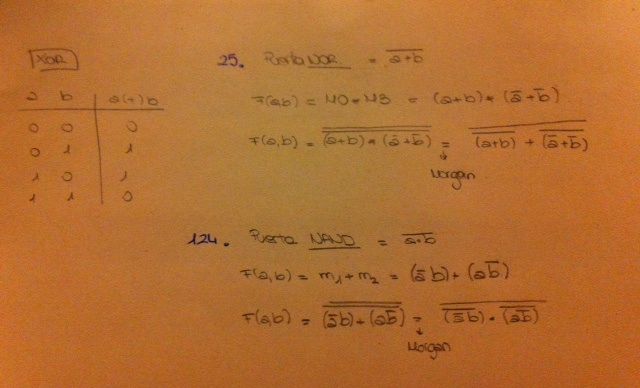 XOR
a b a(+)b
0 0 0
0 1 1
1 0 1
1 1 0
25. Puerta NOR = \overline{a+b}
F(a,b) = M0 * M3 = (a+b) * (a̅+b̅)
F(a,b) = \overline{\overline{(a+b) * (a̅+b̅)}} = \overline{\overline{(a+b)} + \overline{(a̅+b̅)}}
Morgan
124. Puerta NAND = \overline{a·b}
F(a,b) = m1+m2 = (a̅b)+(ab̅)
F(a,b) = \overline{\overline{(a̅b)+(ab̅)}} = \overline{\overline{(a̅b)} * \overline{(ab̅)}}
Morgan